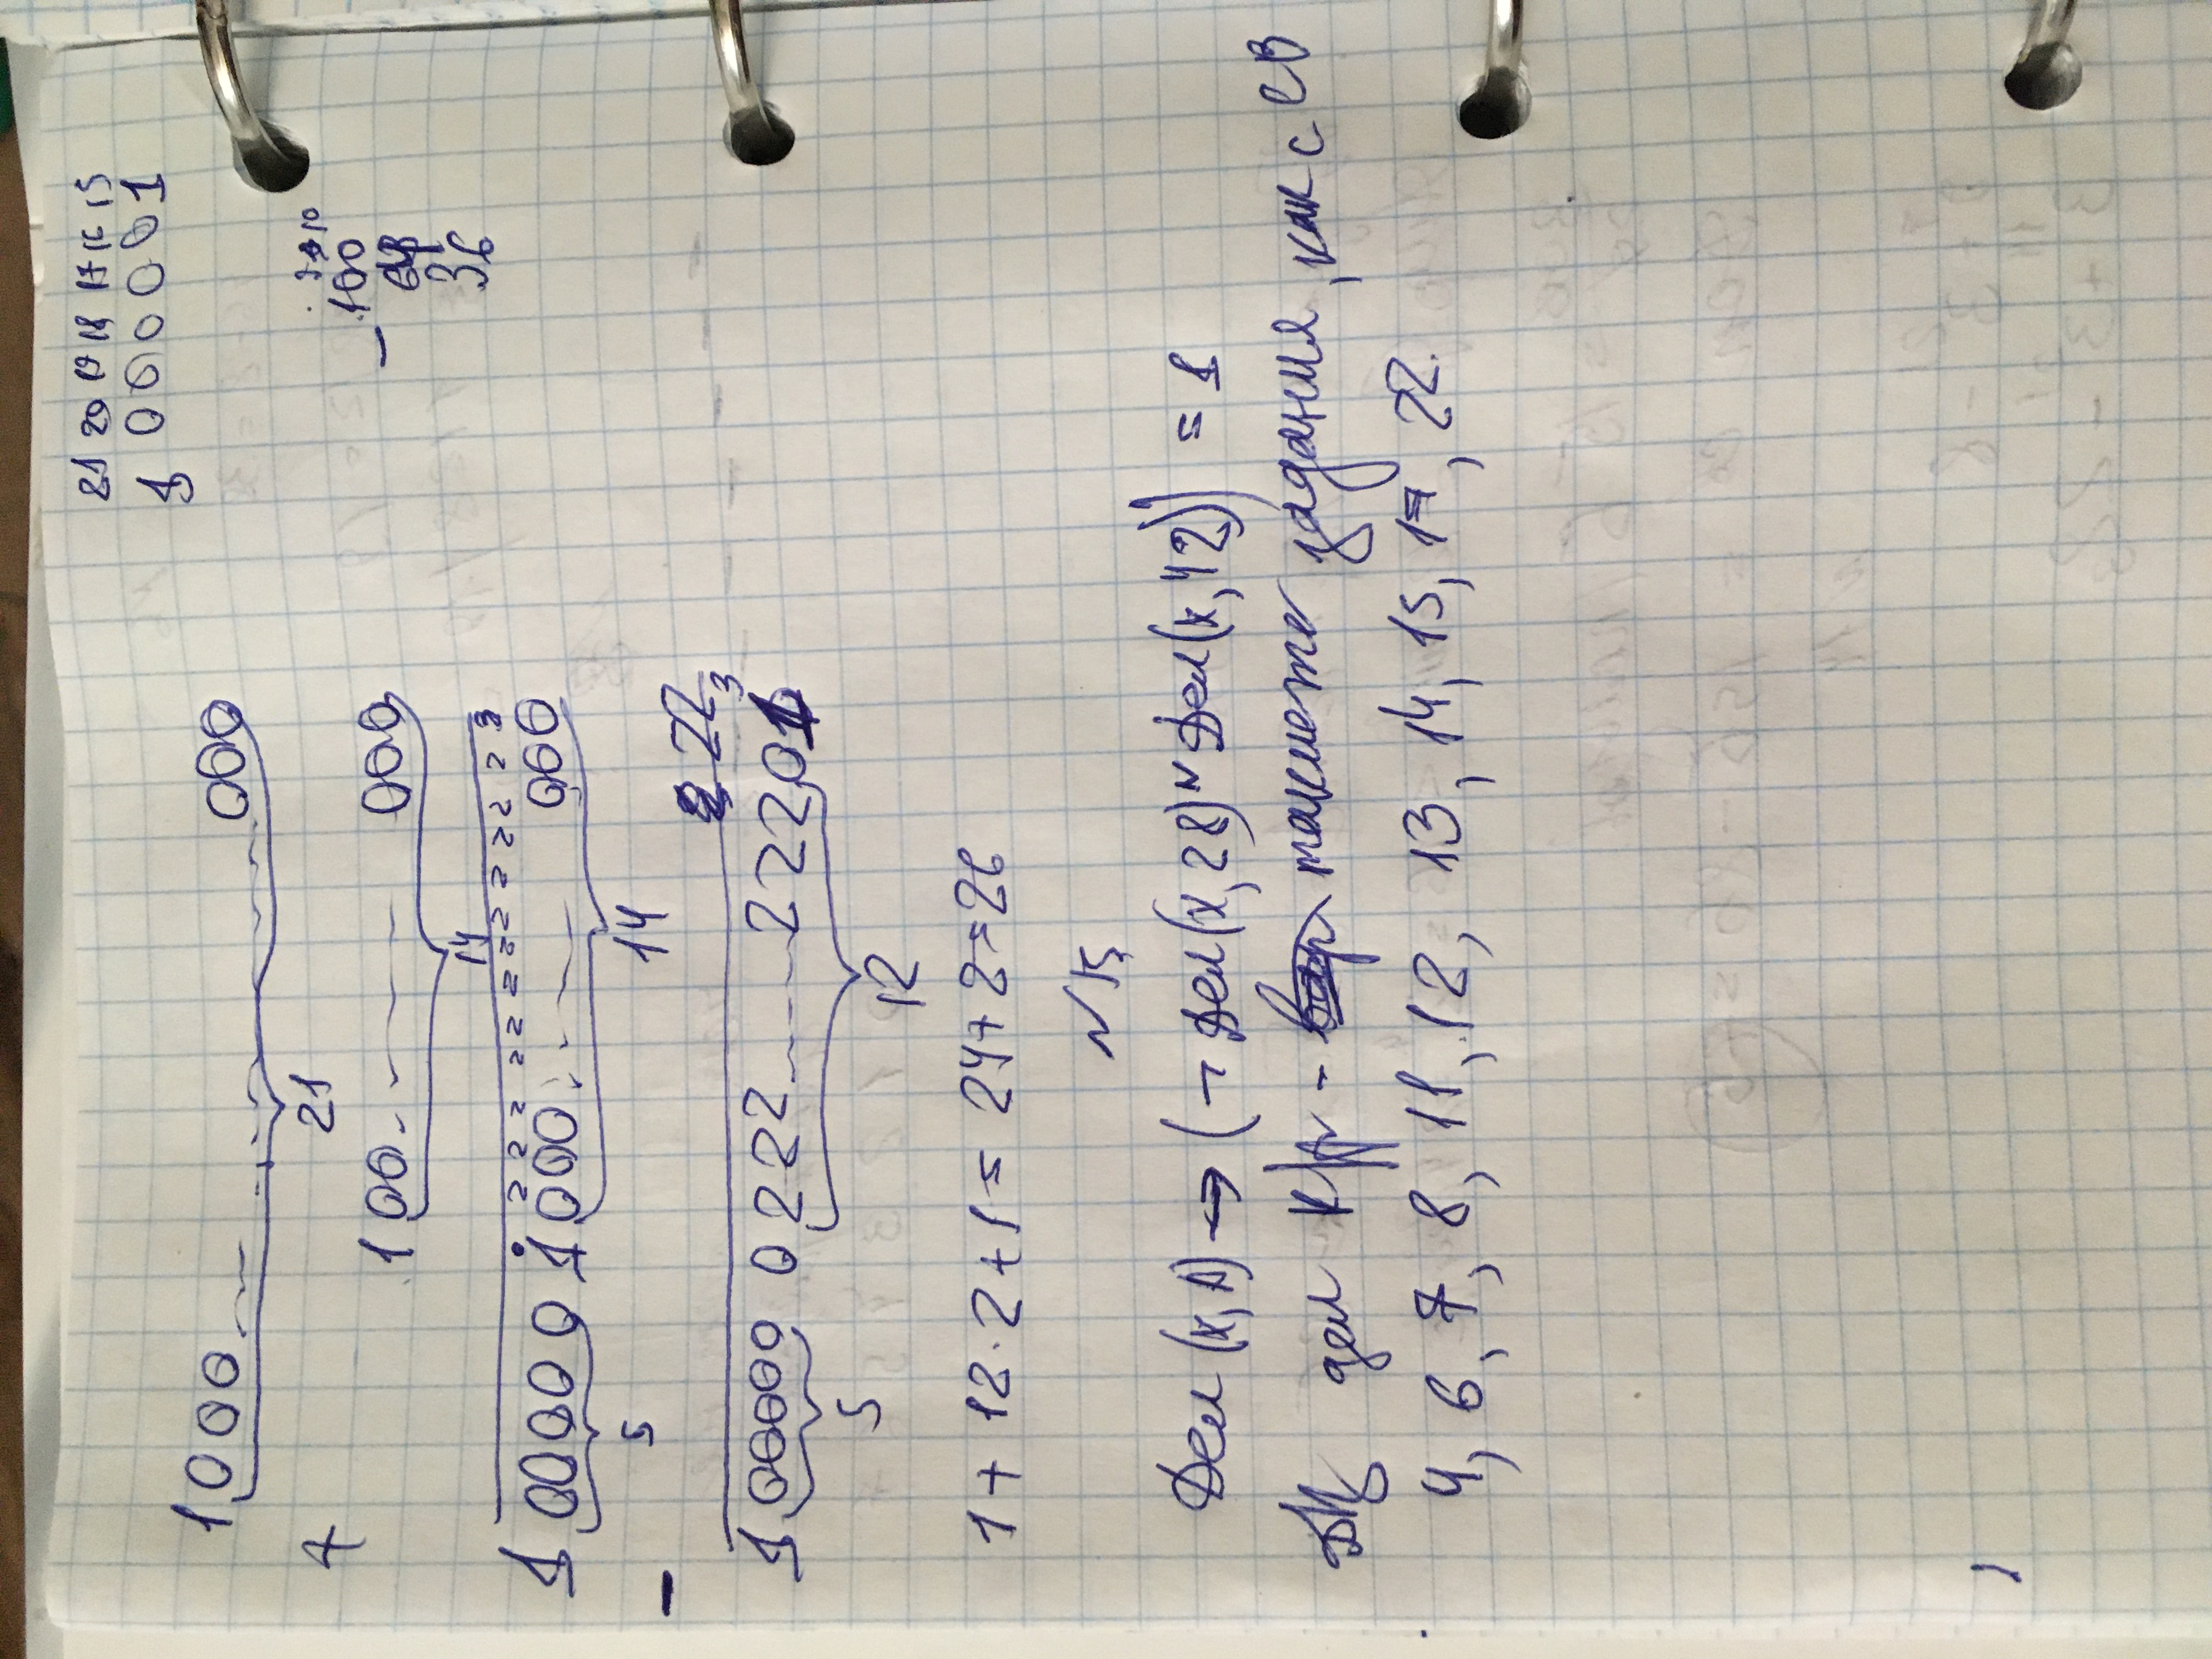 21 20 19 18 17 16 15
1 0 0 0 0 0 1
1000 000
21
+
100 000
14
2 2 2 2 2 2 2 2 2 2 2 2 3
1 00000 1 000 000
5 14
-
22₃
1 00000 0 222 22201
5
12
1 + 12 · 2 + 1 = 24 + 2 = 26
9 10
100
- 64
36
N 15
Дел (x, A) → (¬ Дел(x, 28) ∨ Дел(x, 42)) = 1
ДЗ дел к/р - такие же задания, как с СВ
4, 6, 7, 8, 11, 12, 13, 14, 15, 17, 22.